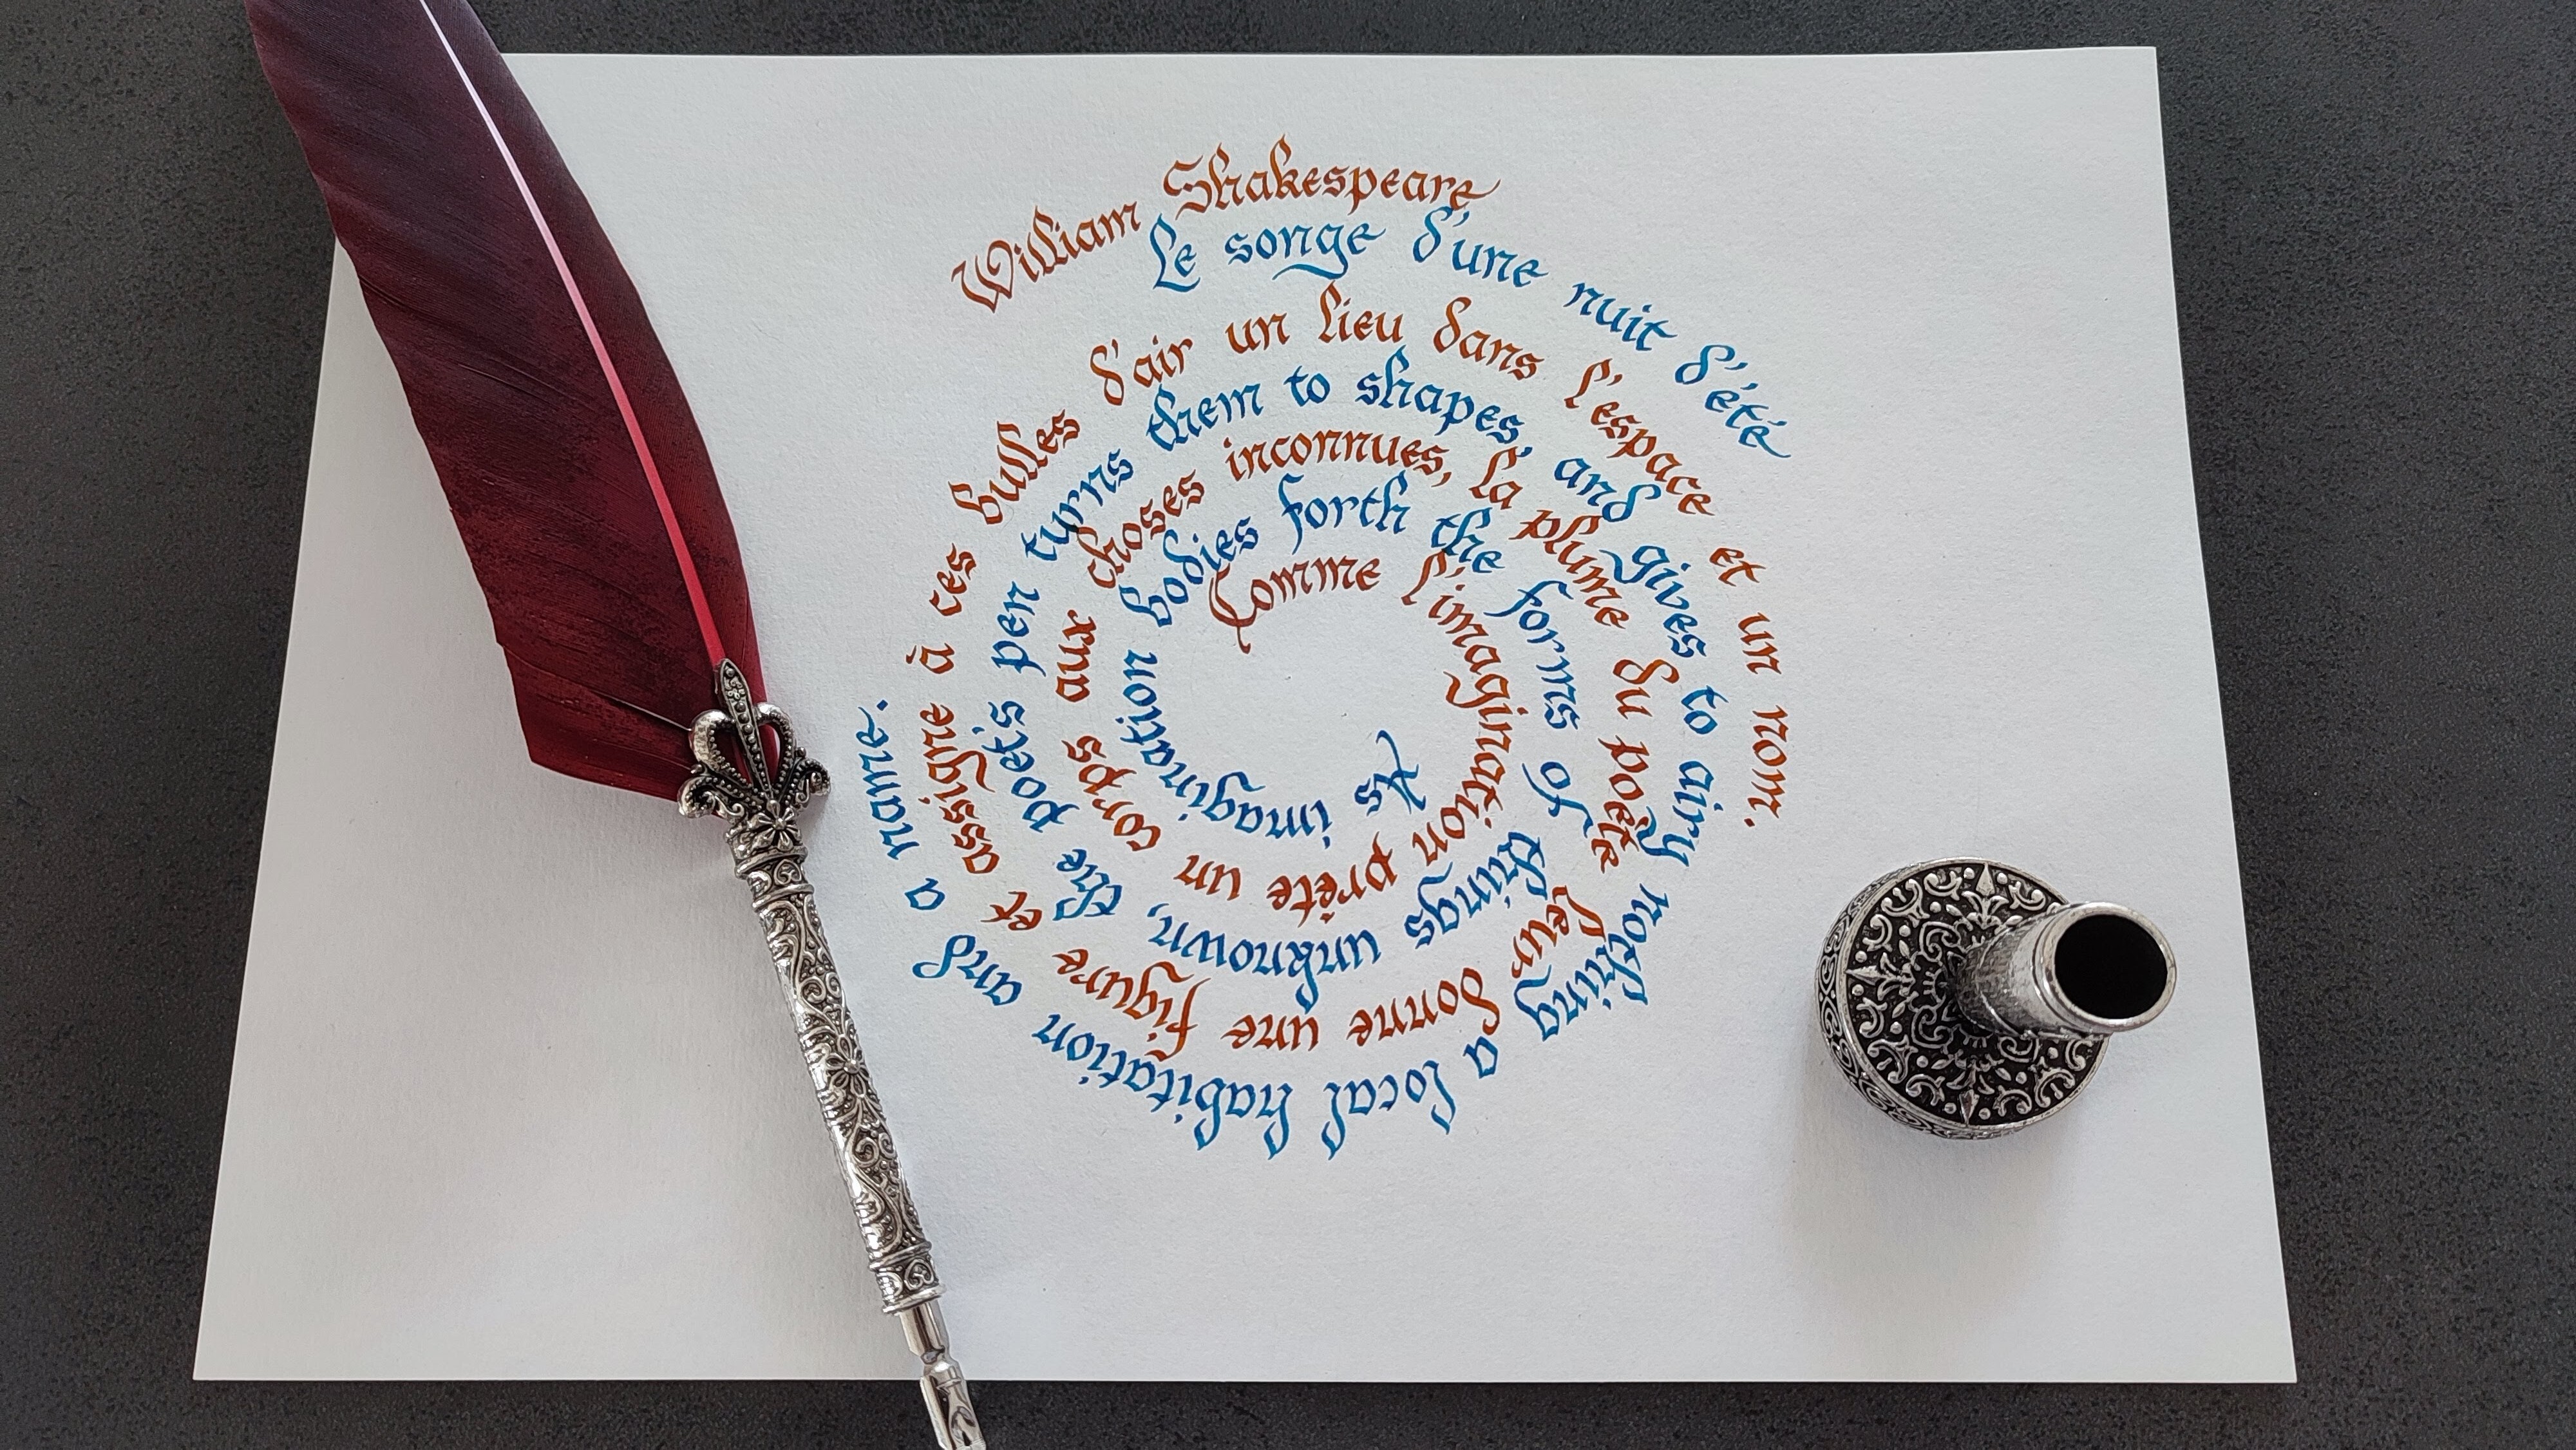 William Shakespeare
Le songe d'une nuit d'été
Comme l'imagination prête un corps aux choses inconnues, la plume du poète leur donne une figure et assigne à ces bulles d'air un lieu dans l'espace et un nom.
As imagination bodies forth the forms of things unknown, the poet's pen turns them to shapes, and gives to airy nothing a local habitation and a name.